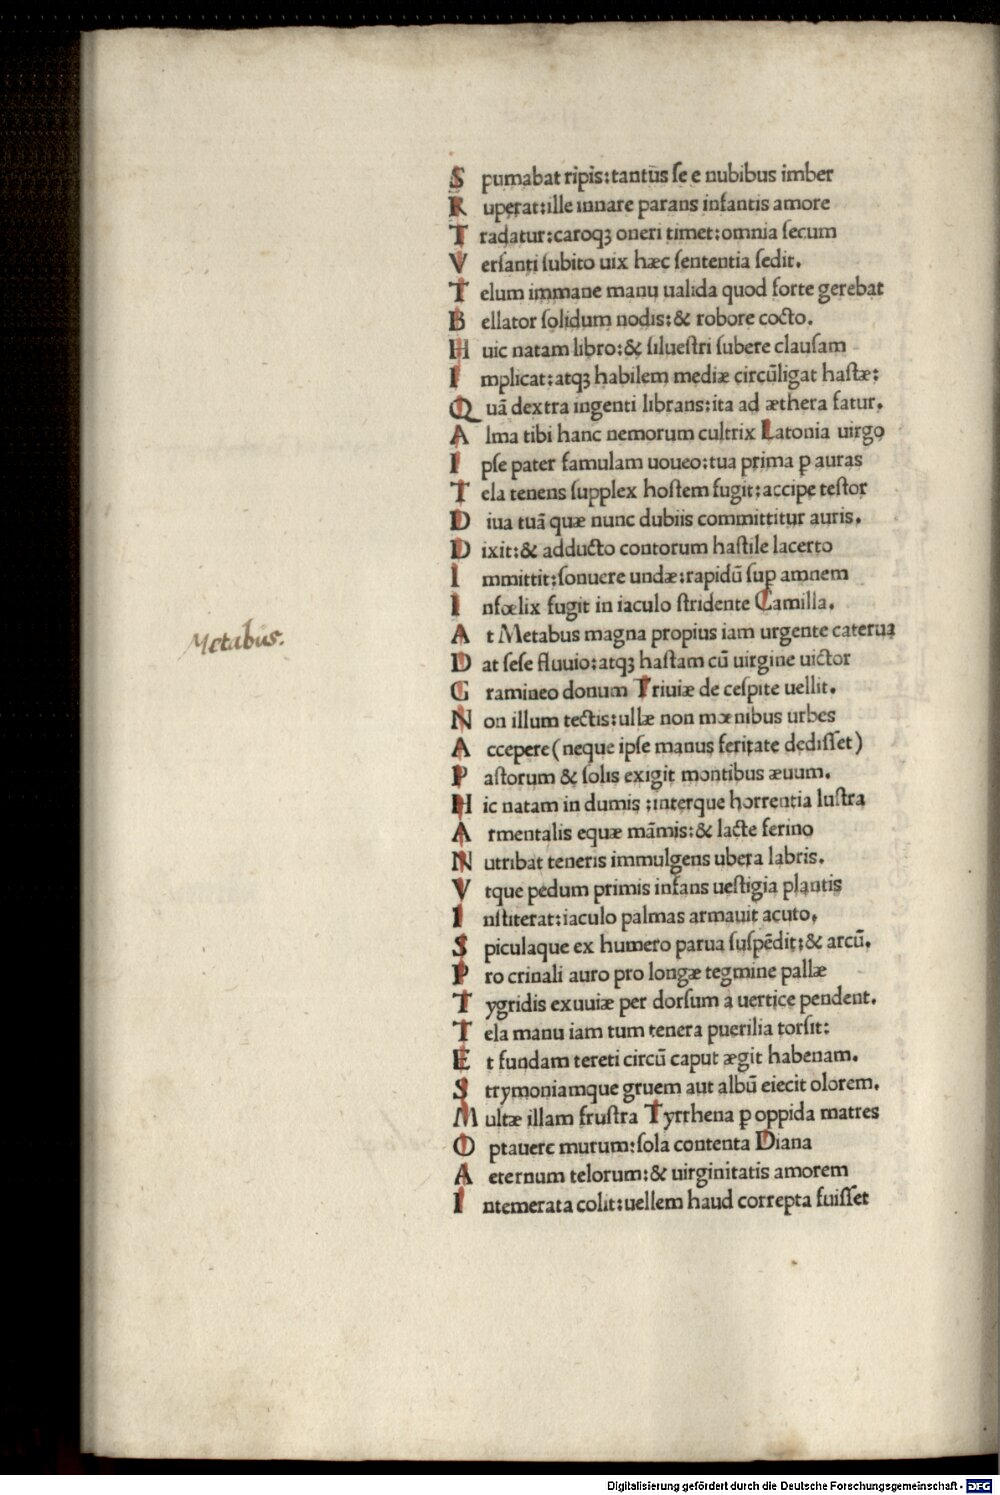 S pumabat ripis:tantũs se e nubibus imber
R uperat:ille innare parans infantis amore
T radatur:caroqꝫ oneri timet:omnia secum
V ersanti subito uix hæc sententia sedit.
T elum immane manu ualida quod forte gerebat
B ellator solidum nodis:& robore cocto.
H uic natam libro:& siluestri subere clausam
I mplicat:atqꝫ habilem mediæ circũligat hastæ:
Q uã dextra ingenti librans:ita ad æthera fatur.
A lma tibi hanc nemorum cultrix Latonia uirgo
I pse pater famulam uoueo:tua prima ꝑ auras
T ela tenens supplex hostem fugit:accipe testor
D iua tuã quæ nunc dubiis committitur auris.
D ixit:& adducto contorum hastile lacerto
I mmittit:sonuere undæ:rapidũ suꝑ amnem
I nfœlix fugit in iaculo stridente Camilla.
A t Metabus magna propius iam urgente caterua
Metabus.
D at sese fluuio:atqꝫ hastam cũ uirgine uictor
G ramineo donum Triuiæ de cespite uellit.
N on illum tectis:ullæ non mœnibus urbes
A ccepere(neque ipse manus feritate dedisset)
P astorum & solis exigit montibus æuum.
H ic natam in dumis :interque horrentia lustra
A rmentalis equæ mãmis:& lacte ferino
N utribat teneris immulgens ubera labris.
V tque pedum primis infans uestigia plantis
I nstiterat:iaculo palmas armauit acuto.
S piculaque ex humero parua suspẽdit:& arcũ.
P ro crinali auro pro longæ tegmine pallæ
T ygridis exuuiæ per dorsum a uertice pendent.
T ela manu iam tum tenera puerilia torsit:
E t fundam tereti circũ caput ægit habenam.
S trymoniamque gruem aut albũ eiecit olorem.
M ultæ illam frustra Tyrrhena ꝑ oppida matres
O ptauere nurum:sola contenta Diana
A eternum telorum:& uirginitatis amorem
I ntemerata colit:uellem haud correpta fuisset
Digitalisierung gefördert durch die Deutsche Forschungsgemeinschaft - DFG